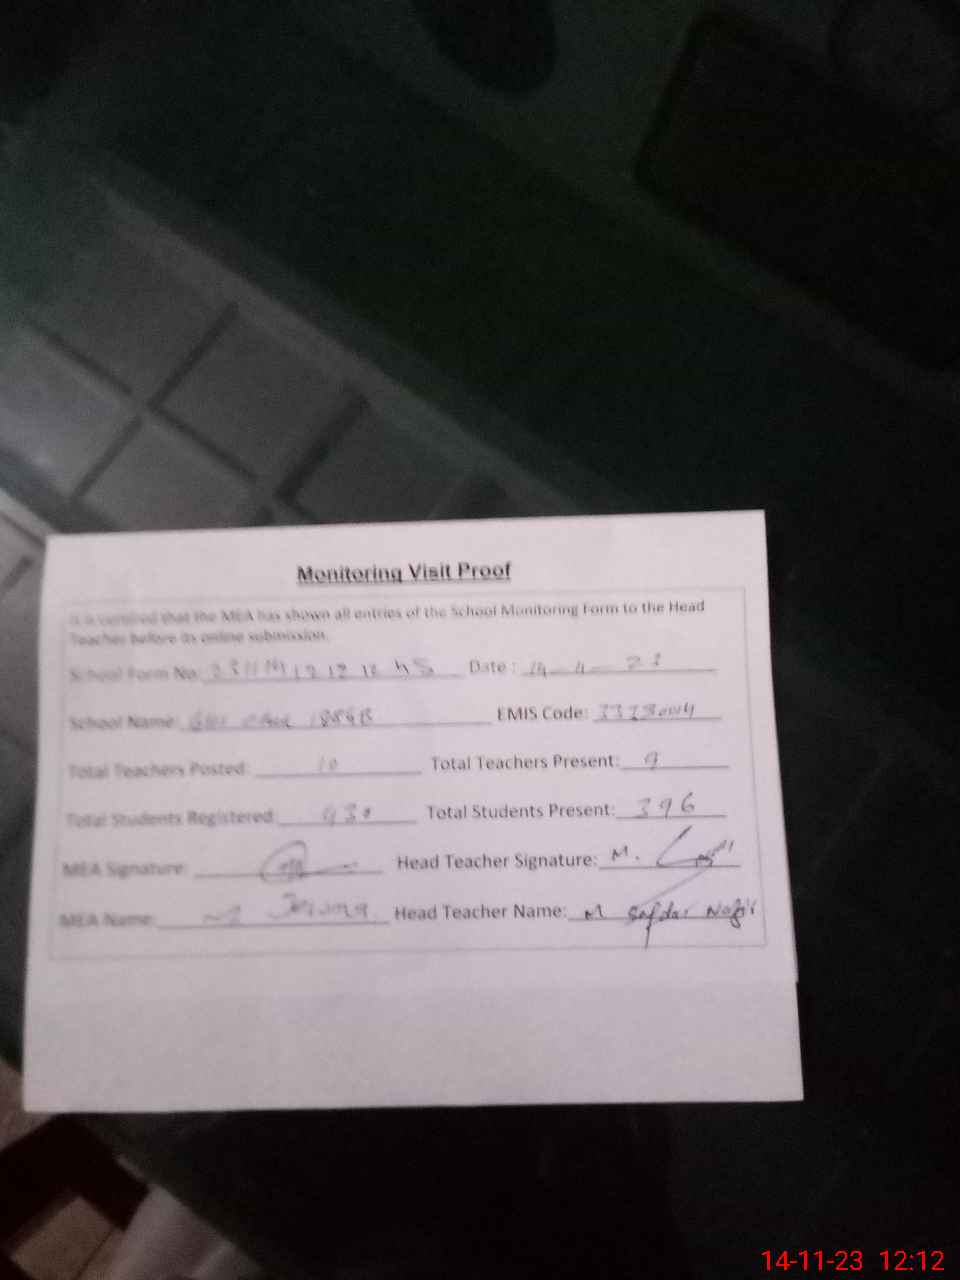 Monitoring Visit Proof
It is certified that the MEA has shown all entries of the School Monitoring Form to the Head
Teacher before its online submission.
School Form No: Date :
School Name: EMIS Code:
Total Teachers Posted: 10 Total Teachers Present: 9
Total Students Registered: 430 Total Students Present: 396
MEA Signature: Head Teacher Signature: M.
MEA Name: M Head Teacher Name: M Safdar
14-11-23 12:12